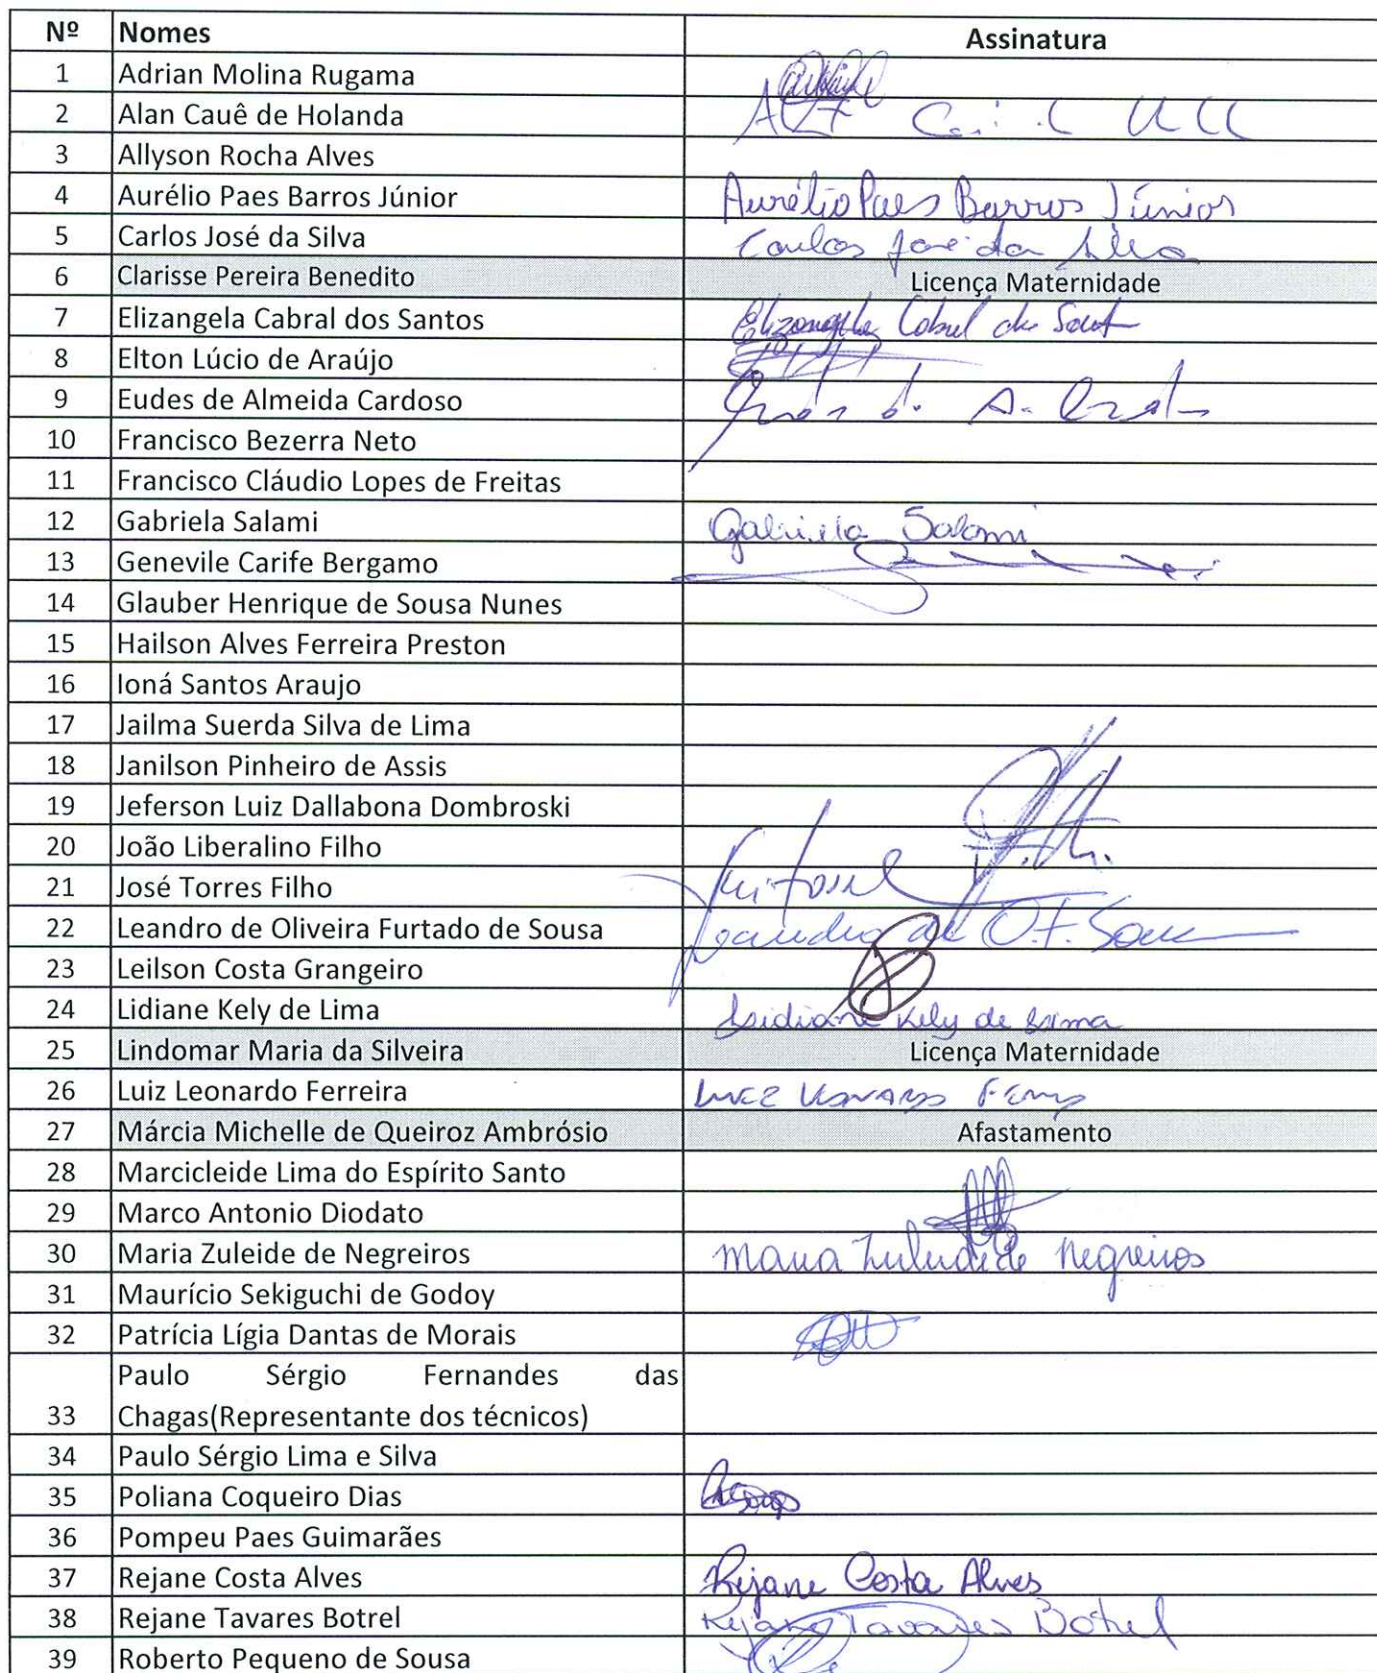 Nº Nomes Assinatura
1 Adrian Molina Rugama
2 Alan Cauê de Holanda
3 Allyson Rocha Alves
4 Aurélio Paes Barros Júnior Aurélio Paes Barros Júnior
5 Carlos José da Silva Carlos José da Silva
6 Clarisse Pereira Benedito Licença Maternidade
7 Elizangela Cabral dos Santos Elizangela Cabral dos Santos
8 Elton Lúcio de Araújo
9 Eudes de Almeida Cardoso
10 Francisco Bezerra Neto
11 Francisco Cláudio Lopes de Freitas
12 Gabriela Salami Gabriela Salami
13 Genevile Carife Bergamo
14 Glauber Henrique de Sousa Nunes
15 Hailson Alves Ferreira Preston
16 Ioná Santos Araujo
17 Jailma Suerda Silva de Lima
18 Janilson Pinheiro de Assis
19 Jeferson Luiz Dallabona Dombroski
20 João Liberalino Filho
21 José Torres Filho
22 Leandro de Oliveira Furtado de Sousa Leandro de O.F. Sousa
23 Leilson Costa Grangeiro
24 Lidiane Kely de Lima Lidiane Kely de Lima
25 Lindomar Maria da Silveira Licença Maternidade
26 Luiz Leonardo Ferreira
27 Márcia Michelle de Queiroz Ambrósio Afastamento
28 Marcicleide Lima do Espírito Santo
29 Marco Antonio Diodato
30 Maria Zuleide de Negreiros Maria Zuleide de Negreiros
31 Maurício Sekiguchi de Godoy
32 Patrícia Lígia Dantas de Morais
Paulo Sérgio Fernandes das
33 Chagas(Representante dos técnicos)
34 Paulo Sérgio Lima e Silva
35 Poliana Coqueiro Dias
36 Pompeu Paes Guimarães
37 Rejane Costa Alves Rejane Costa Alves
38 Rejane Tavares Botrel Rejane Tavares Botrel
39 Roberto Pequeno de Sousa